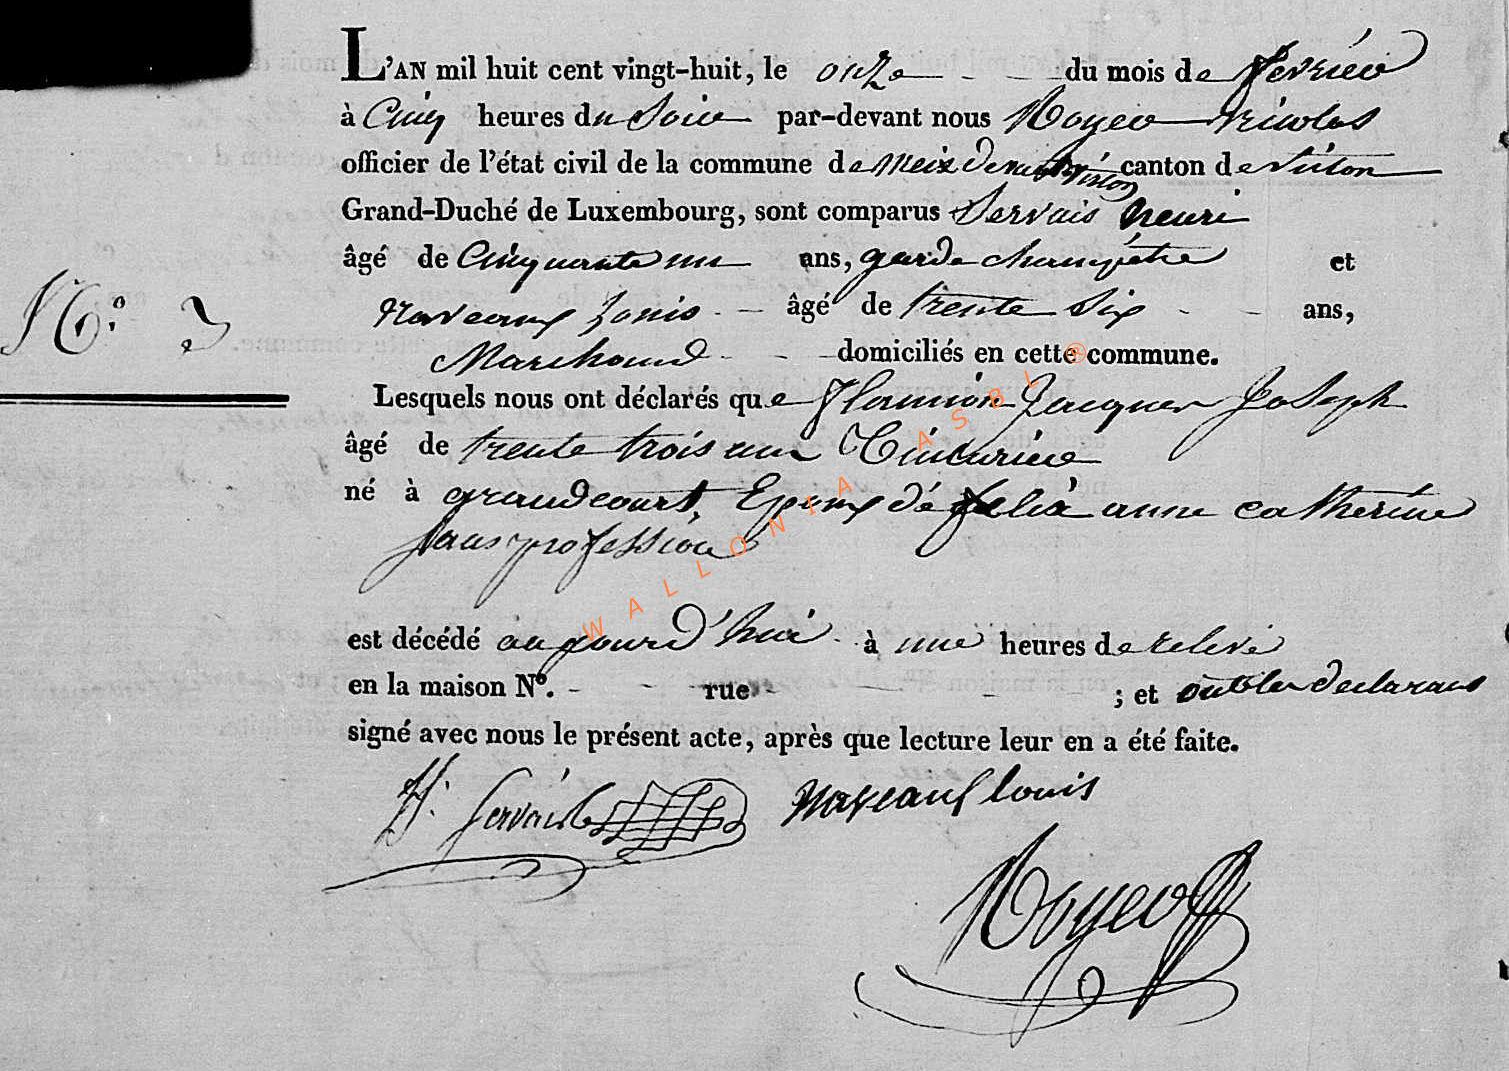 L'AN mil huit cent vingt-huit, le onze du mois de fevrier
à Cinq heures du Soir par-devant nous Noyer Nicolas
officier de l'état civil de la commune de Meix devant virton canton de virton
Grand-Duché de Luxembourg, sont comparus Servais henri
âgé de Cinquante un ans, garde champêtre et
Naveaux Louis âgé de trente Six ans,
Marchand domiciliés en cette commune.
N.º 3
Lesquels nous ont déclarés que Jacques Joseph
âgé de trente trois ans Teinturier
né à grandcourt Epoux de felix anne catherine
sans profession
est décédé aujourd'hui à une heures de relevé
en la maison Nº. rue ; et ont les declarans
signé avec nous le présent acte, après que lecture leur en a été faite.
H. Servais Naveaux louis
Noyer
WALLONIA ASBL ®